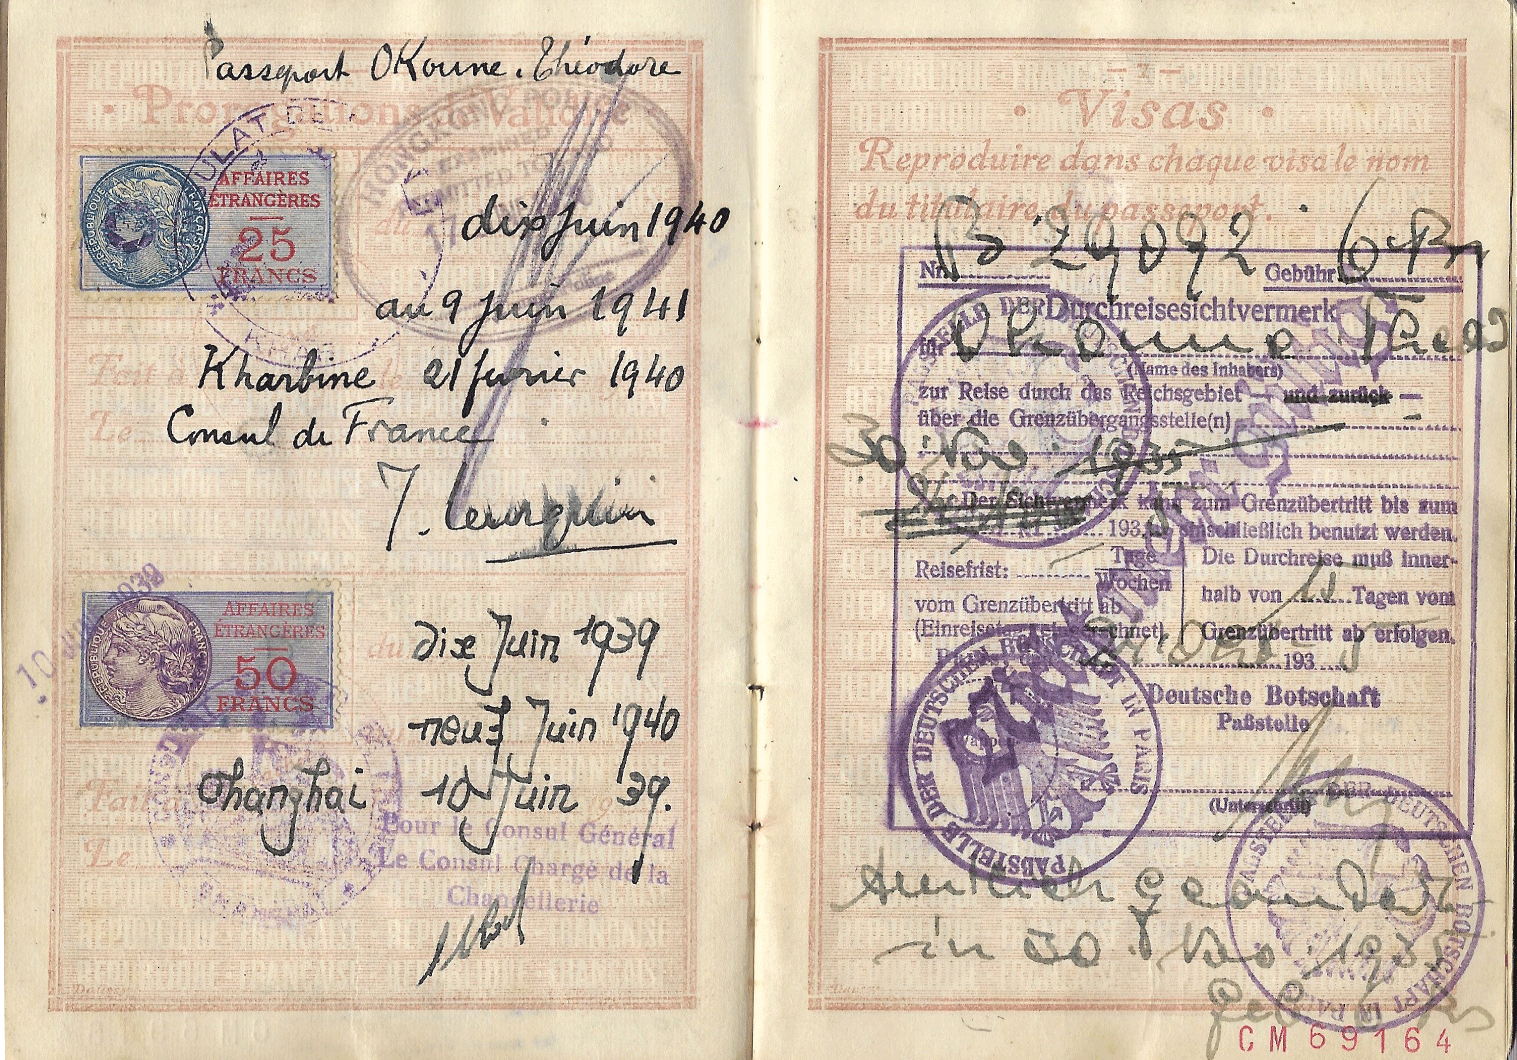 Passeport OKoune. Théodore
Prorogations de Validité
CONSULAT DE
HONGKONG POLICE
EXAMINED
PERMITTED TO LAND
AFFAIRES
ÉTRANGÈRES
25
FRANCS
RÉPUBLIQUE FRANÇAISE
du dix Juin 1940
au 9 Juin 1941
Fait à Kharbine le 21 février 1940
Le Consul de France
AFFAIRES
ÉTRANGÈRES
50
FRANCS
RÉPUBLIQUE FRANÇAISE
du dix Juin 1939
neuf Juin 1940
Fait à Changhai 10 Juin 39.
Le
Pour le Consul Général
Le Consul Chargé de la
Chancellerie
- 7 -
· Visas ·
Reproduire dans chaque visa le nom
du titulaire du passeport.
Nr. B 29092 Gebühr 6 RM
Durchreisesichtvermerk
(Name des Inhabers)
zur Reise durch das Reichsgebiet — und zurück —
über die Grenzübergangsstelle(n)
30 Nov. 1935
Der Sichtvermerk kann zum Grenzübertritt bis zum
193 einschließlich benutzt werden.
Reisefrist: Tage
Wochen
vom Grenzübertritt ab
Die Durchreise muß inner-
halb von Tagen vom
Grenzübertritt ab erfolgen.
193 5
Deutsche Botschaft
Paßstelle
(Unterschrift)
PAßSTELLE DER DEUTSCHEN BOTSCHAFT IN PARIS
PAßSTELLE DER DEUTSCHEN BOTSCHAFT IN PARIS
PAßSTELLE DER DEUTSCHEN BOTSCHAFT IN PARIS
Amtlich geändert
in 30. Nov 1935
CM69164